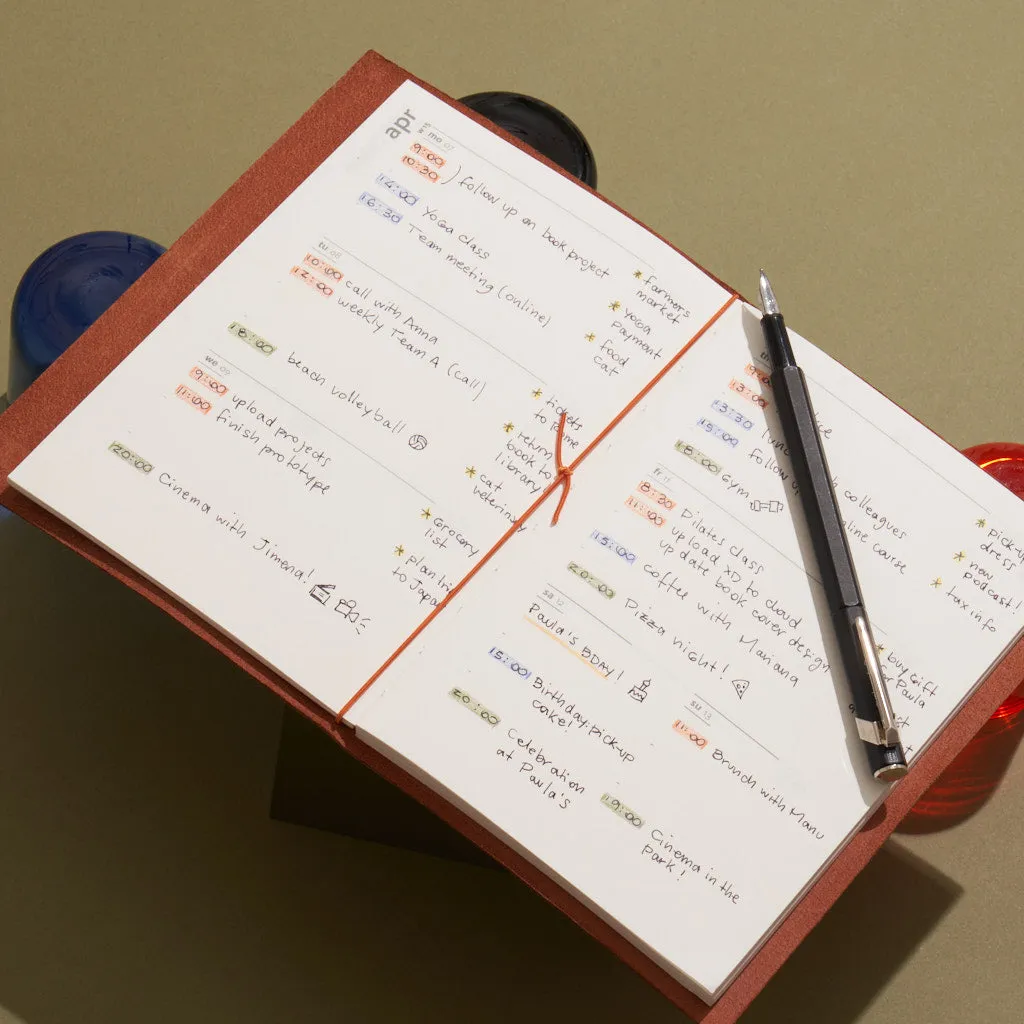 apr
mo 07
9:00
10:30 ) follow up on book project
14:00 Yoga class
16:30 Team meeting (online)
* farmers
market
* yoga
payment
* food
cat
tu 08
10:00 call with Anna
12:00 weekly Team A (call)
18:00 beach volleyball
* tickets
to Rome
* return
book to
library
* cat
veterinary
we 09
9:00 upload projects
11:00 finish prototype
20:00 Cinema with Jimena!
* grocery
list
* plan
to Japan
th
13:00
13:30
15:00 follow
colleagues
course
18:00 Gym
* pick-up
dress
* new
podcast!
* tax info
fr 11
8:30 Pilates class
11:00 upload XD to cloud
update book cover design
15:00 coffee with Mariana
20:00 Pizza night!
* buy gift
for Paula
sa 12
Paula's BDAY!
15:00 Birthday: pick-up
cake!
20:00 Celebration
at Paula's
su 13
11:00 Brunch with Manu
19:00 Cinema in the
Park!